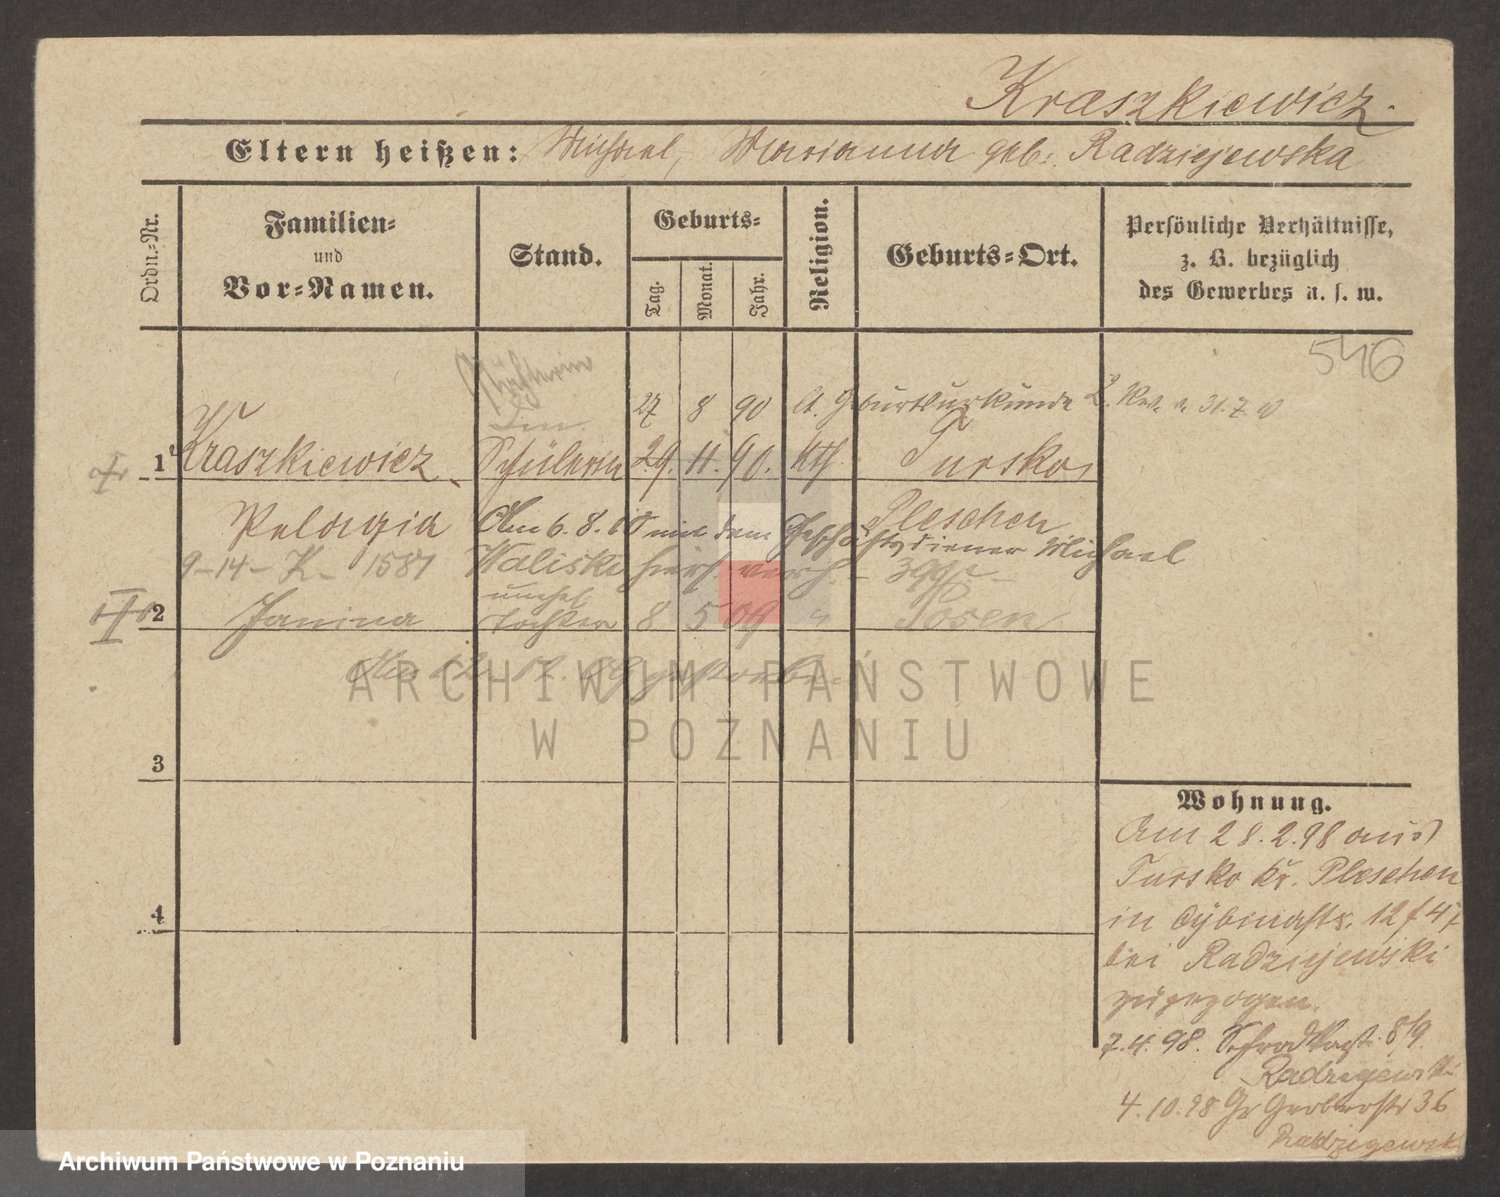 Kraszkiewicz.
Eltern heißen: Michael, Marianna geb. Radziejewska
Ordn.-Nr.
Familien-
und
Vor-Namen.
Stand.
Geburts-
Tag.
Monat.
Jahr.
Religion.
Geburts-Ort.
Persönliche Verhältnisse,
z. B. bezüglich
des Gewerbes u. s. w.
546
27 8 90 lt. Geburtsurkunde 31.7
1 Kraszkiewicz Schülerin 29. 11. 90. kth Tursko,
Pelagia
Pleschen
Am 6. 8. mit dem Geschäftsdiener Michael
9-14-K- 1581
Waliski hier
unehel.
2 Janina Tochter 8 5 09 " Posen
ARCHIWUM PAŃSTWOWE
W POZNANIU
3
4
Wohnung.
Am 28.2.98 aus
Tursko Kr. Pleschen
in 12
bei Radziejewski
zugezogen.
7.4.98. 8/9
Radziejewski
4.10.98 Gr Gerberstr 36
Radziejewsk
Archiwum Państwowe w Poznaniu